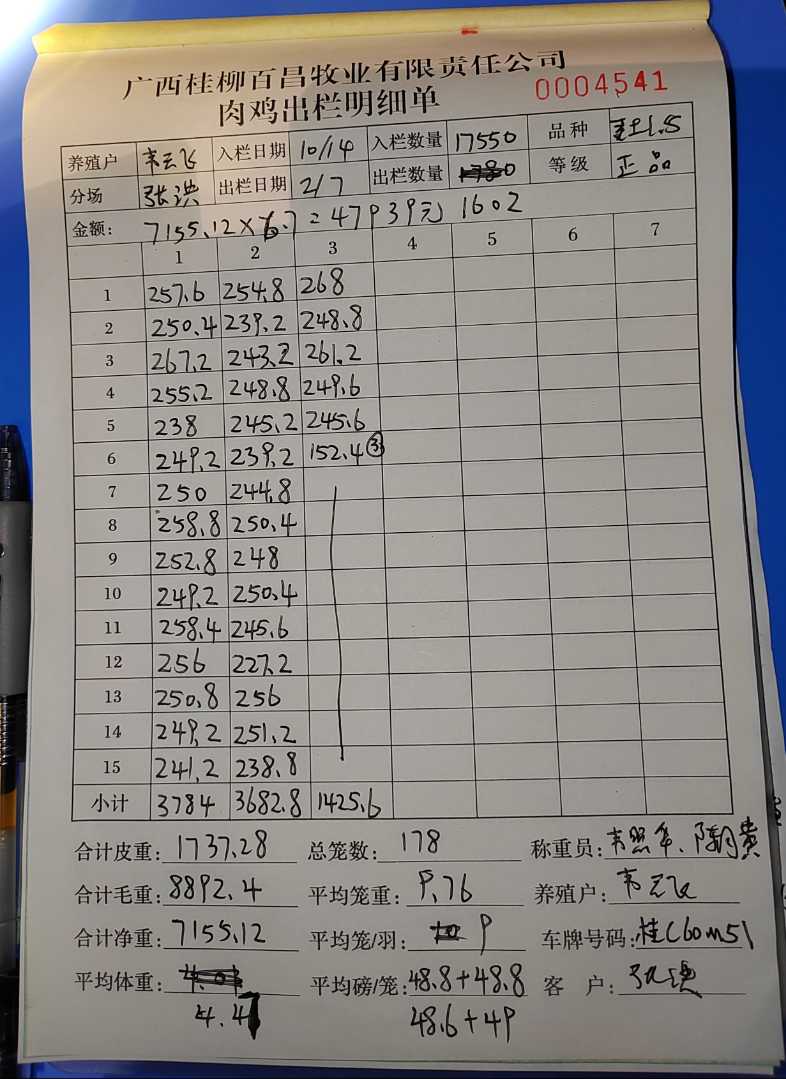 广西桂柳百昌牧业有限责任公司
肉鸡出栏明细单 0004541
养殖户 韦云飞 入栏日期 10/14 入栏数量 17550 品种
分场 张洪 出栏日期 2/7 出栏数量 等级 正品
金额: 7155.12×6.7=47939元 1602
1 2 3 4 5 6 7
1 257.6 254.8 268
2 250.4 239.2 248.8
3 267.2 243.2 261.2
4 255.2 248.8 249.6
5 238 245.2 245.6
6 249.2 239.2 152.4 ③
7 250 244.8
8 258.8 250.4
9 252.8 248
10 249.2 250.4
11 258.4 245.6
12 256 227.2
13 250.8 256
14 249.2 251.2
15 241.2 238.8
小计 3784 3682.8 1425.6
合计皮重: 1737.28 总笼数: 178 称重员:
合计毛重: 8892.4 平均笼重: 9.76 养殖户: 韦云飞
合计净重: 7155.12 平均笼/羽: 9 车牌号码:
平均体重: 平均磅/笼: 48.8+48.8 客 户:
4.47 48.6+49